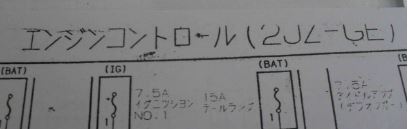 エンジンコントロール(2JZ-GE)
(BAT) (IG) (BAT)
7.5A 15A 7.5A
イグニッション テールランプ
NO.1